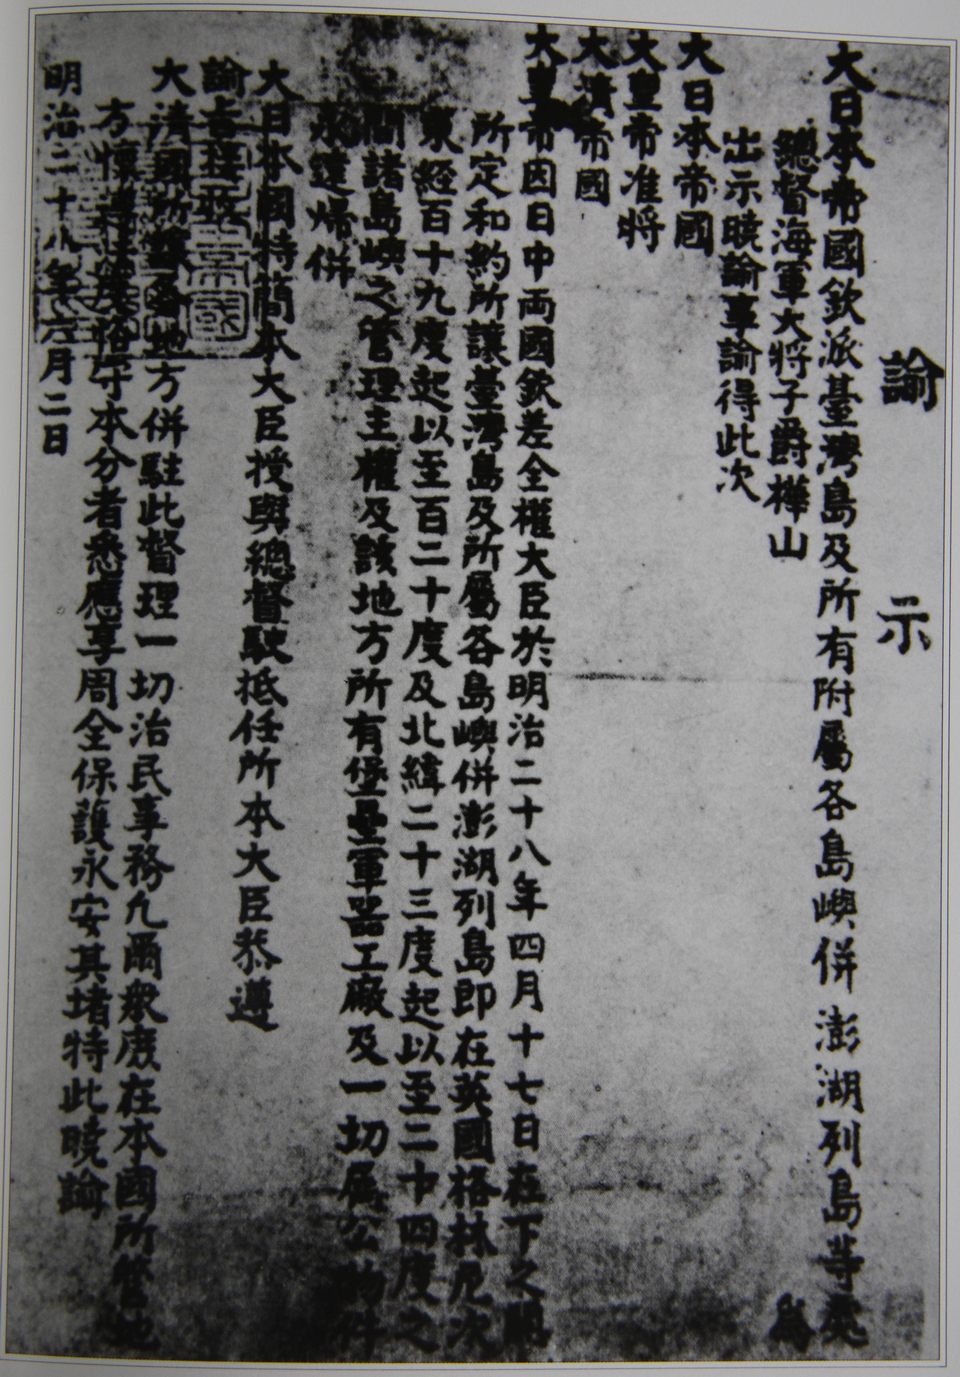 諭示
大日本帝國欽派臺灣島及所有附屬各島嶼併澎湖列島等處
總督海軍大將子爵樺山 為
出示曉諭事諭得此次
大日本帝國
大皇帝准將
大清帝國
大皇帝因日中両國欽差全權大臣於明治二十八年四月十七日在下之關
所定和約所讓臺灣島及所屬各島嶼併澎湖列島即在英國格林尼次
東經百十九度起以至百二十度及北緯二十三度起以至二十四度之
間諸島嶼之管理主權及該地方所有堡壘軍器工廠及一切屬公物件
永遠歸併
大日本國特簡本大臣授與總督駛抵任所本大臣恭遵
諭旨
大清國所讓各地方併駐此督理一切治民事務凡爾眾庶在本國所管地
方懍遵 守本分者悉應享周全保護永安其堵特此曉諭
明治二十八年六月二日